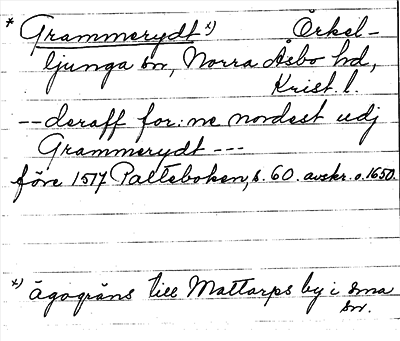 * Grammerydt x) Örkel-
ljunga sn, Norra Åsbo hd,
Krist. l.
-- deraff for:ne nordest udj
Grammerydt ---
före 1517 Palteboken, s. 60. avskr. o. 1650.
x) ägogräns till Mattarps by i sma
sn.